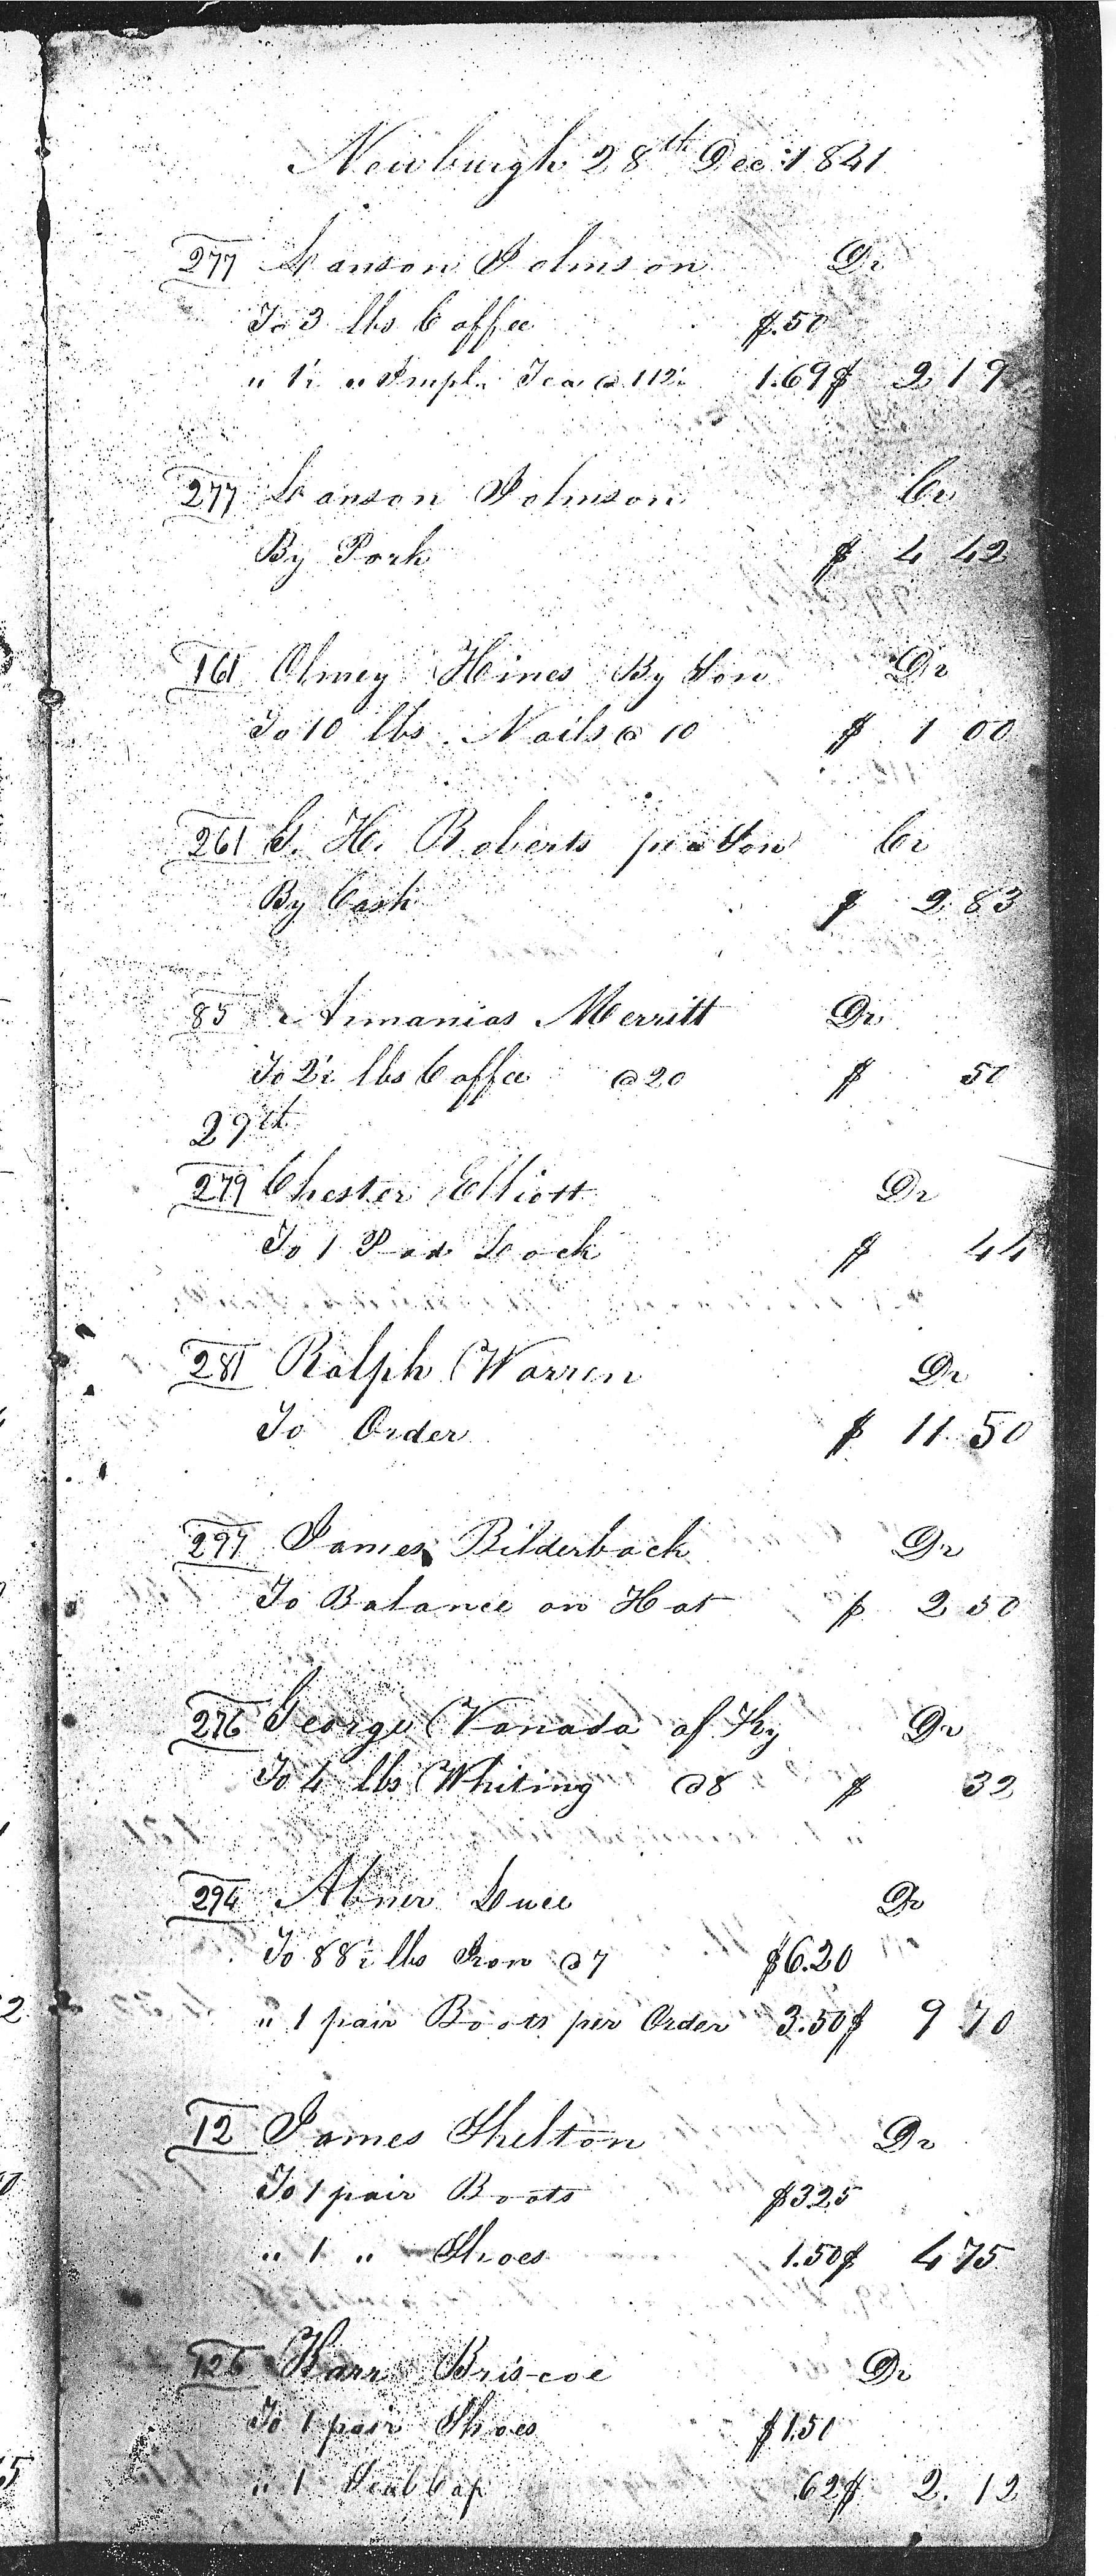 Newburgh 28th Dec: 1841
277 Lanson Johnson Dr
To 3 lbs Coffee $.50
" 1½ " Impl. Tea @ 112½ 1.69 $ 2 19
277 Lanson Johnson Cr
By Pork $ 4 42
161 Olmey Hines By Son Dr
To 10 lbs. Nails @ 10 $ 1 00
261 G. H. Roberts per Son Cr
By Cash $ 2 83
85 Merritt Dr
To 2½ lbs Coffee @ 20 $ 50
29th
279 Chester Elliott Dr
To 1 Pad Lock $ 44
281 Ralph Warren Dr
To Order $ 11 50
297 James Bilderback Dr
To Balance on Hat $ 2 50
276 George Vanada of Ky Dr
To 4 lbs Whiting @ 8 $ 32
294 Abner Luce Dr
To 88½ lbs Iron @ 7 $6.20
" 1 pair Boots per Order 3.50 $ 9 70
12 James Shelton Dr
To 1 pair Boots $3.25
" 1 " Shoes 1.50 $ 4 75
126 Karr Briscoe Dr
To 1 pair Shoes $1.50
" 1 Seal Cap .62 $ 2. 12